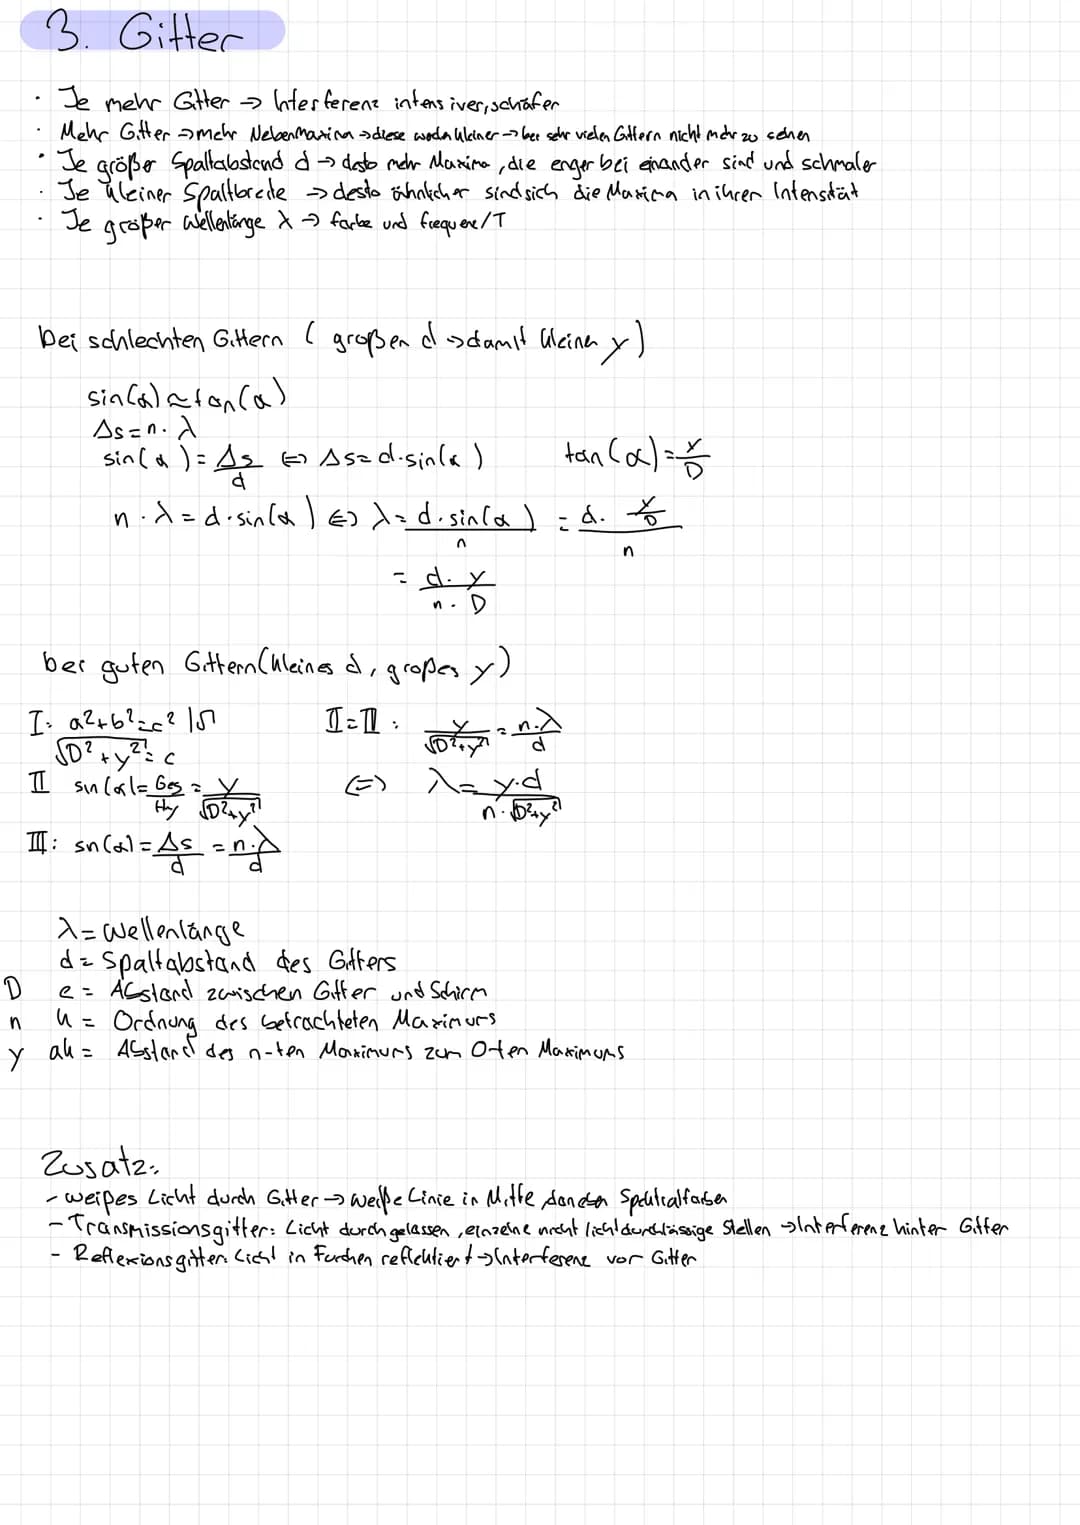 3. Gitter
· Je mehr Gitter → Interferenz intensiver, schärfer
· Mehr Gitter → mehr Nebenmaxima → diese werden kleiner → bei sehr vielen Gittern nicht mehr zu sehen
· Je größer Spaltabstand d → desto mehr Maxima, die enger bei einander sind und schmaler
· Je kleiner Spaltbreite → desto ähnlicher sind sich die Maxima in ihren Intensität
· Je größer Wellenlänge λ → farbe und frequenz/T
bei schlechten Gittern ( großen d → damit kleinen y)
sin(α) ≈ tan(α)
Δs = n · λ
sin(α) = Δs/d ⇔ Δs = d · sin(α) tan(α) = y/D
n · λ = d · sin(α) ⇔ λ = d · sin(α)/n = d · y/D / n
= d · y / n · D
bei guten Gittern (kleines d, großes y)
I: a²+b²=c² |√ II=III: y/√D²+y² = n·λ/d
√D²+y² = c
II sin(α) = Geg/Hy = y/√D²+y² ⇔ λ = y·d / n·√D²+y²
III: sin(α) = Δs/d = n·λ/d
λ = Wellenlänge
d = Spaltabstand des Gitters
D e = Abstand zwischen Gitter und Schirm
n k = Ordnung des betrachteten Maximums
y ak = Abstand des n-ten Maximums zum 0ten Maximums
Zusatz:
- weißes Licht durch Gitter → weiße Linie in Mitte daneben Spektralfarben
- Transmissionsgitter: Licht durchgelassen, einzelne nicht lichtdurchlässige Stellen → Interferenz hinter Gitter
- Reflexionsgitter: Licht in Furchen reflektiert → Interferenz vor Gitter